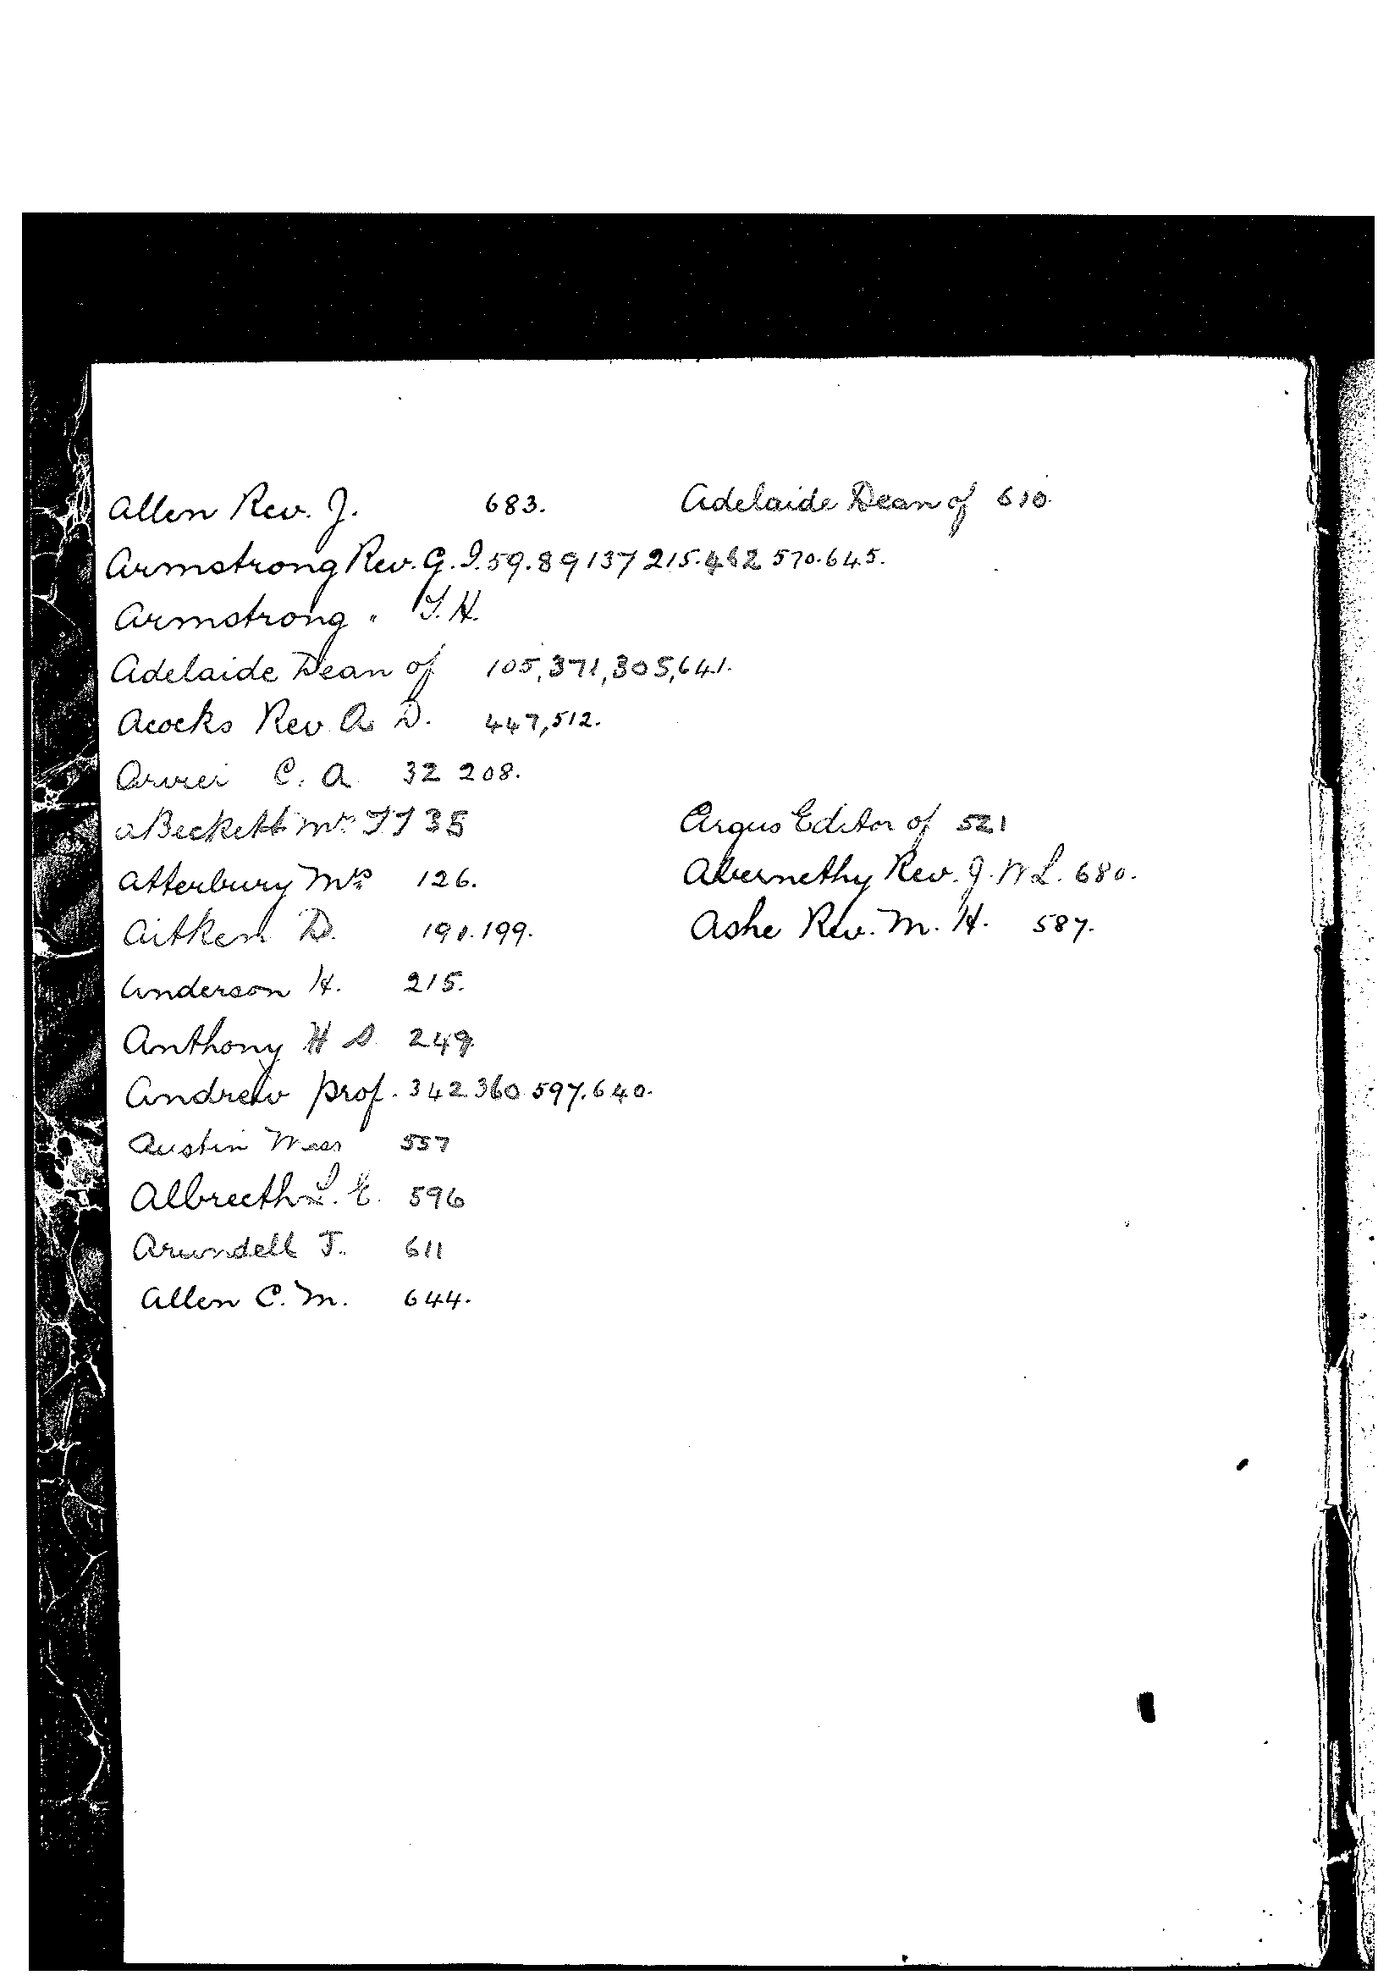 Allen Rev. J. 683. Adelaide Dean of 610.
Armstrong Rev. G. I. 59. 89 137 215. 462 570. 645.
Armstrong " T. H.
Adelaide Dean of 105, 371, 305, 641.
Acocks Rev A. D. 447, 512.
C. A. 32 208.
aBeckett Mr T T 35 Argus Editor of 521
Atterbury Mrs 126. Abernethy Rev. J. W L. 680.
Aitken D. 191. 199. Ashe Rev. M. H. 587.
Anderson H. 215.
Anthony H S 249
Andrew Prof. 342 360 597. 640.
Austin Miss 557
Albrecth L. E. 596
Arundell J. 611
Allen C. M. 644.